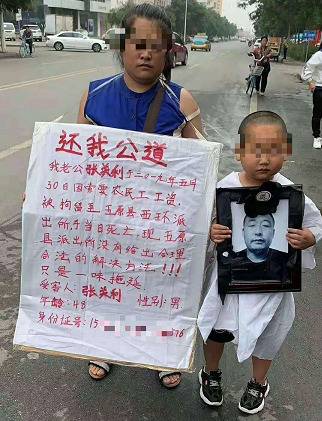 还我公道
我老公张美利于二〇一九年五月
30日因索要农民工工资,
被拘留至五原县西环派
出所,于当日死亡,现五原
县派出所没有给出合理
合法的解决方法!!!
只是一味拖延
受害人:张美利
年龄:48 性别:男
身份证号:15 76